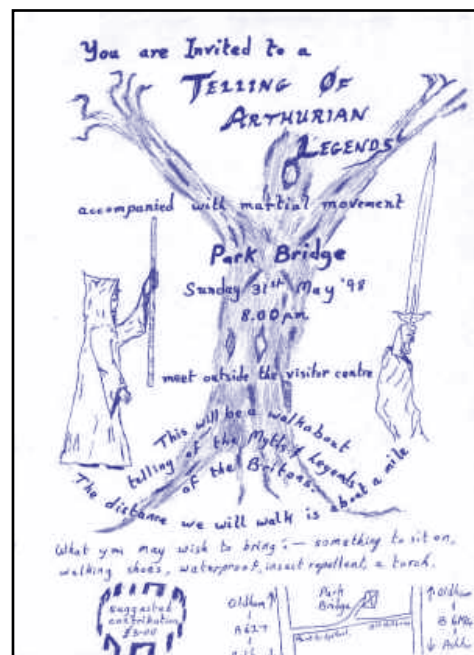 You are Invited to a
TELLING OF
ARTHURIAN
LEGENDS
accompanied with martial movement
Park Bridge
Sunday 31st May '98
8.00 pm
meet outside the visitor centre
This will be a walkabout
telling of the Myths & Legends
of the Britons.
The distance we will walk is about a mile
What you may wish to bring :— something to sit on,
walking shoes, waterproof, insect repellent, a torch.
Suggested
contribution
£3.00
Oldham
A627
Park
Bridge
Oldham